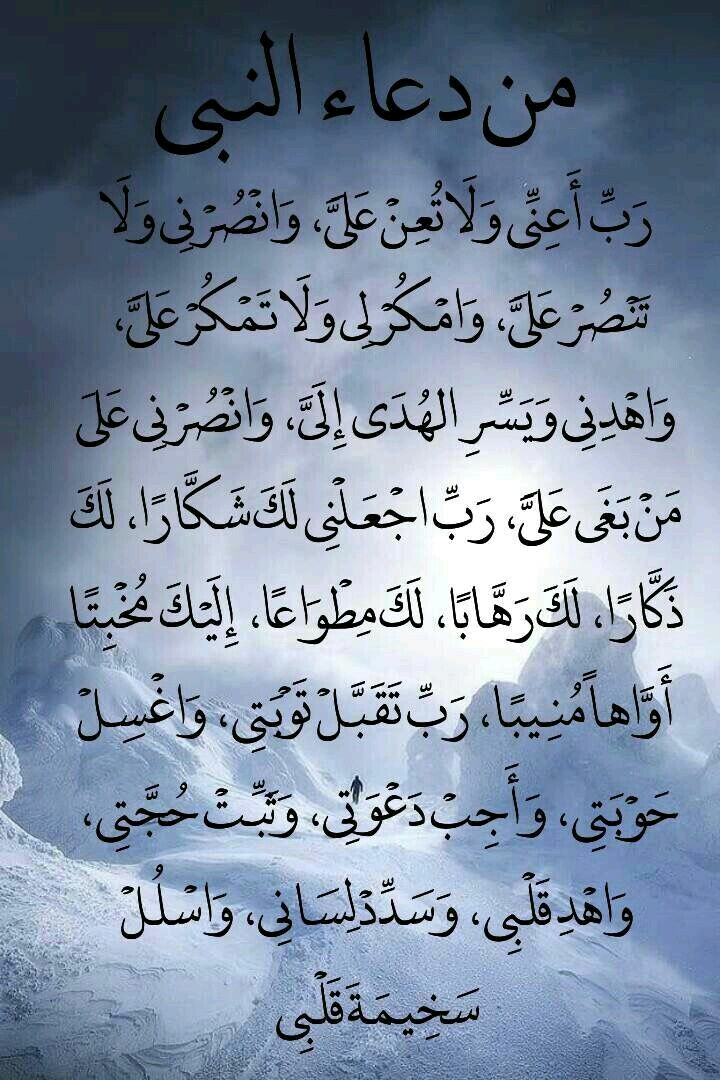 من دعاء النبي
رَبِّ أَعِنِّي وَلَا تُعِنْ عَلَيَّ، وَانْصُرْنِي وَلَا
تَنْصُرْ عَلَيَّ، وَامْكُرْ لِي وَلَا تَمْكُرْ عَلَيَّ،
وَاهْدِنِي وَيَسِّرِ الهُدَى إِلَيَّ، وَانْصُرْنِي عَلَى
مَنْ بَغَى عَلَيَّ، رَبِّ اجْعَلْنِي لَكَ شَكَّارًا، لَكَ
ذَكَّارًا، لَكَ رَهَّابًا، لَكَ مِطْوَاعًا، إِلَيْكَ مُخْبِتًا
أَوَّاهاً مُنِيبًا، رَبِّ تَقَبَّلْ تَوْبَتِي، وَاغْسِلْ
حَوْبَتِي، وَأَجِبْ دَعْوَتِي، وَثَبِّتْ حُجَّتِي،
وَاهْدِ قَلْبِي، وَسَدِّدْ لِسَانِي، وَاسْلُلْ
سَخِيمَةَ قَلْبِي